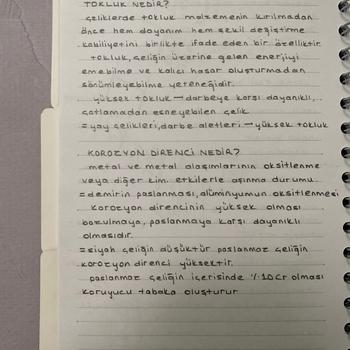 TOKLUK NEDİR?
Çeliklerde tokluk malzemenin kırılmadan
önce hem dayanım hem şekil değiştirme
kabiliyetini birlikte ifade eden bir özelliktir
tokluk, çeliğin üzerine gelen enerjiyi
emebilme ve kalıcı hasar oluşturmadan
sönümleyebilme yeteneğidir.
yüksek tokluk → darbeye karşı dayanıklı,
çatlamadan esneyebilen çelik
= yay çelikleri, darbe aletleri → yüksek tokluk
KOROZYON DİRENCİ NEDİR?
metal ve metal alaşımlarının oksitlenme
veya diğer kim. etkilerle aşınma durumu.
= demirin paslanması, alüminyumun oksitlenmesi
korozyon direncinin yüksek olması
bozulmaya, paslanmaya karşı dayanıklı
olmasıdır.
= siyah çeliğin düşüktür paslanmaz çeliğin
korozyon direnci yüksektir.
paslanmaz çeliğin içerisinde %10 Cr olması
koruyucu tabaka oluşturur